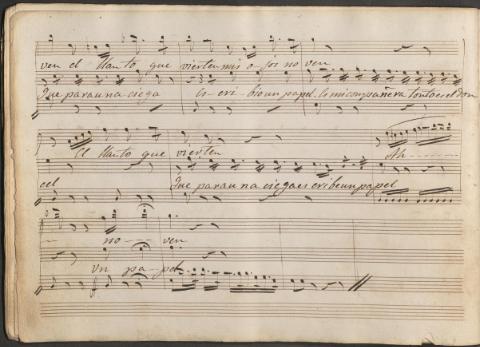 ven el llanto que vierten mis ojos no ven
Que para una ciega Es-cri-bio un papel Es mi compañera tonta es el don
El llanto que vierten oh
cel Que para una ciega es cribe un papel
no - ven
Un pa - pel